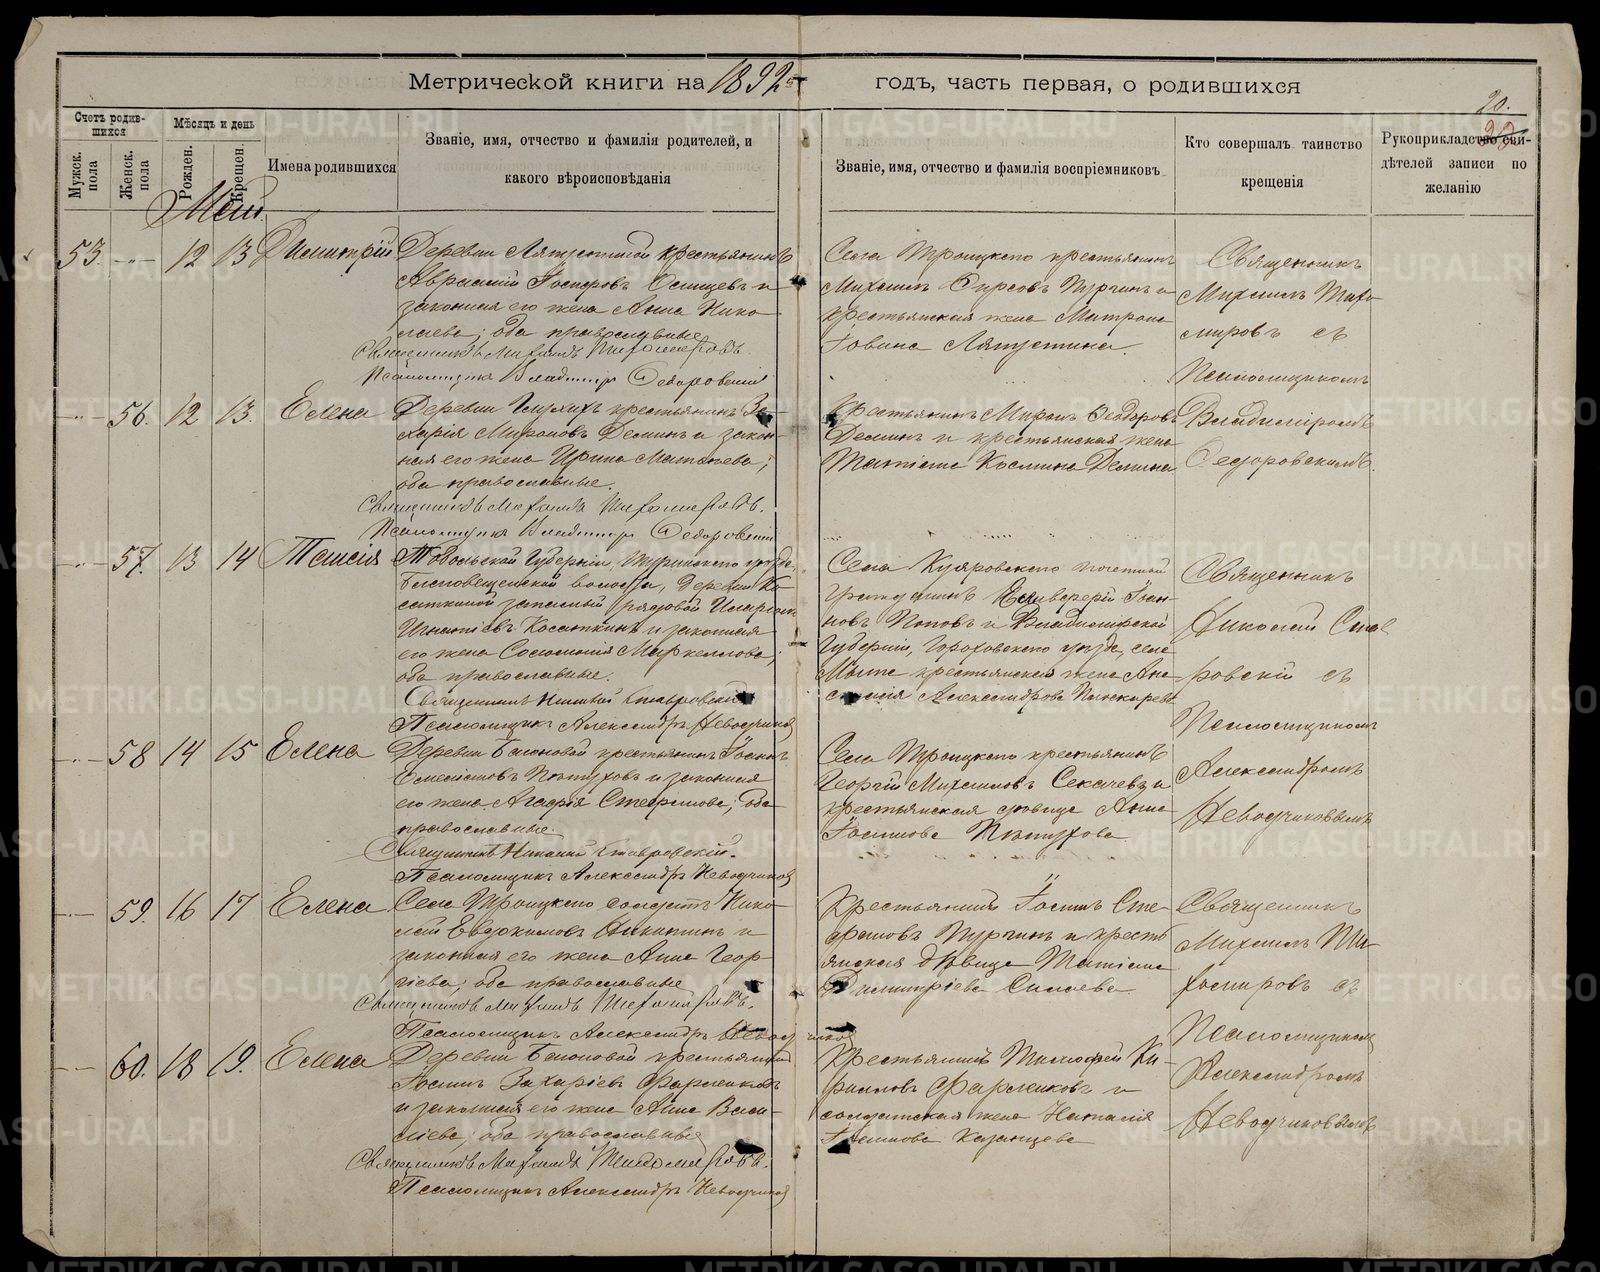 Метрической книги на 1892 й годъ, часть первая, о родившихся
20.
Счетъ родив-
шихся
Мужск. пола
Женск. пола
Мѣсяцъ и день
Рожден.
Крещен.
Имена родившихся
Званіе, имя, отчество и фамилія родителей, и
какого вѣроисповѣданія
Званіе, имя, отчество и фамилія воспріемниковъ
Кто совершалъ таинство
крещенія
Рукоприкладство сви-
дѣтелей записи по
желанію
Май.
53. 12 13 Димитрій
Деревни Ляпустиной крестьянинъ
законная его жена Анна Нико-
лаева; оба православные
Священникъ Михаилъ Тихомировъ.
Псаломщикъ Владиміръ Федоровскій
Села Троицкаго крестьянинъ
Михаилъ Фирсовъ Турчинъ и
крестьянская жена Матрона
Іовина Ляпустина.
Священникъ
Михаилъ Тихо-
мировъ съ
Псаломщикомъ
Владиміромъ
Федоровскимъ.
56. 12 13. Елена
Деревни крестьянинъ За-
харія Мироновъ Деминъ и закон-
ная его жена Ирина Матѳеева;
оба православные.
Священникъ Михаилъ Тихомировъ.
Псаломщикъ Владиміръ Федоровскій
Крестьянинъ Миронъ Ѳеодоровъ
Деминъ и крестьянская жена
Татіана Косьмина Демина
57. 13 14 Таисія
Тобольской Губерніи, Туринскаго уѣзда,
Благовещенской волости, Деревни Ко-
саткиной запасный рядовой
Игнатіевъ Косаткинъ и законная
его жена Соломонія Маркеллова;
оба православные.
Священникъ Николай Ставровскій
Псаломщикъ Александръ Неводчиковъ
Села Куяровскаго почетный
гражданинъ Елевферій Іоан-
новъ Поповъ и Владимірской
Губерніи, Гороховскаго уѣзда, села
Мыта крестьянская жена Ана-
стасія Александрова Пинжарева
Священникъ
Николай Став-
ровскій съ
Псаломщикомъ
Александромъ
Неводчиковымъ
58 14 15 Елена
Деревни Басмановой крестьянинъ Іоаннъ
Емельяновъ Пѣтуховъ и законная
его жена Агафія Стефанова; оба
православные.
Священникъ Николай Ставровскій.
Псаломщикъ Александръ Неводчиковъ
Села Троицкаго крестьянинъ
Георгій Михаиловъ Секачевъ и
крестьянская дѣвица Анна
Іоаннова Пѣтухова.
59. 16 17 Елена
Села Троицкаго солдатъ Нико-
лай Евдокимовъ Никитинъ и
законная его жена Анна Геор-
гіева; оба православные
Священникъ Михаилъ Тихомировъ.
Псаломщикъ Александръ Неводчиковъ
Крестьянинъ Іосифъ Сте-
фановъ Турчинъ и кресть-
янская дѣвица Татіана
Димитріева Силаева
Священникъ
Михаилъ Ти-
хомировъ съ
Псаломщикомъ
Александромъ
Неводчиковымъ
60. 18 19. Елена
Деревни Басмановой крестьянинъ
Іосифъ Захаріевъ Фарленковъ
и законная его жена Анна Васи-
ліева; оба православные
Священникъ Михаилъ Тихомировъ.
Псаломщикъ Александръ Неводчиковъ
Крестьянинъ Тимофей Ки-
рилловъ Фарленковъ и
солдатская жена Наталія
Іоаннова Казанцева